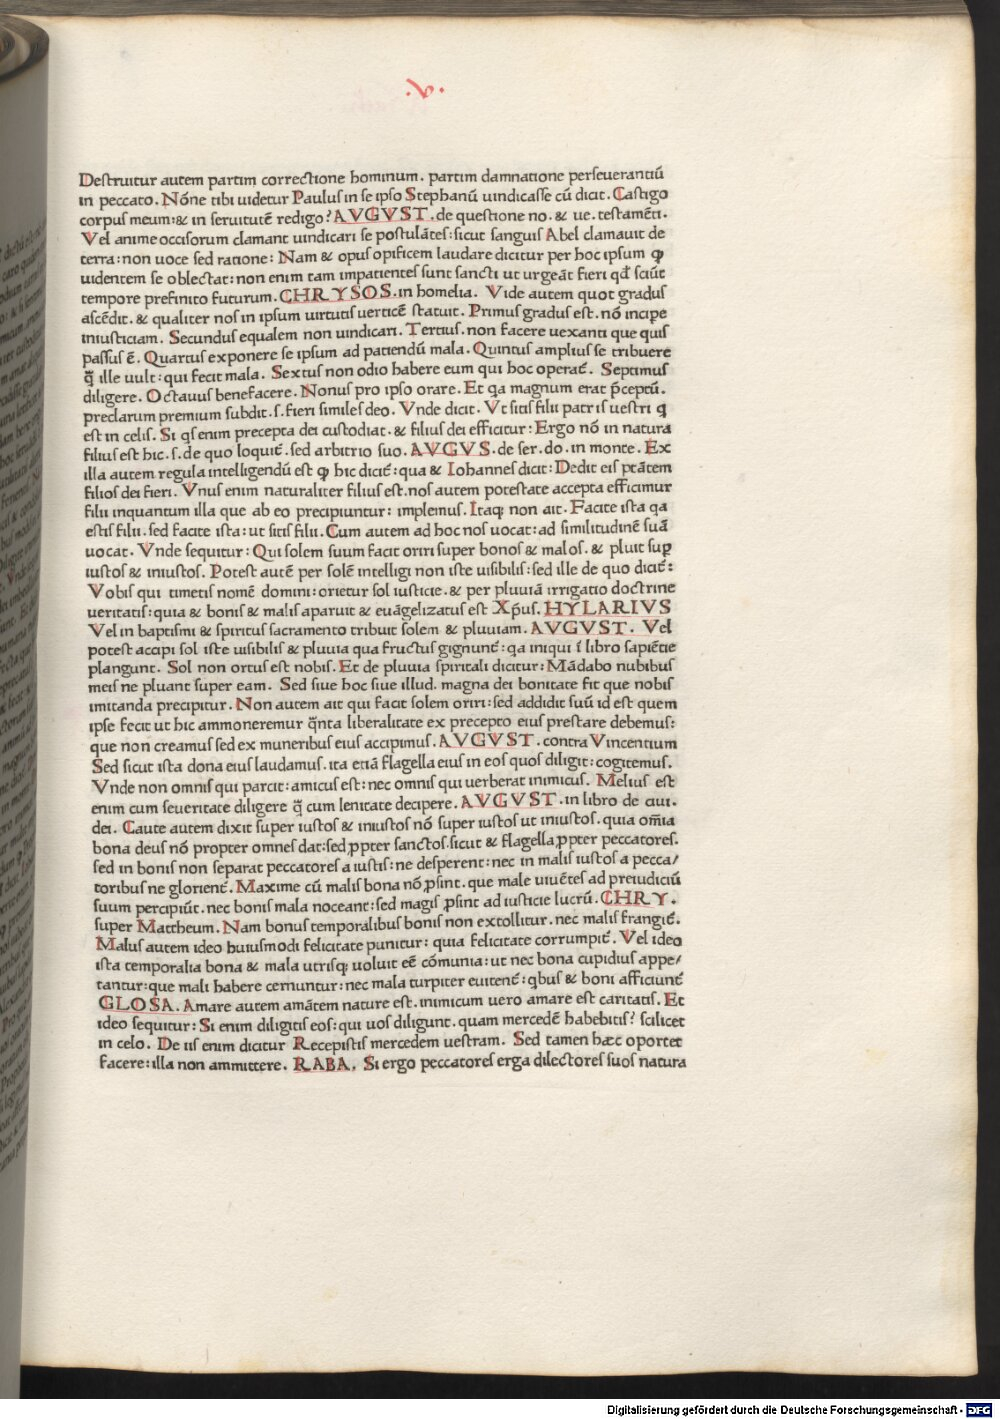 .v.
Destruitur autem partim correctione hominum. partim damnatione perseuerantiū
in peccato. Nōne tibi uidetur Paulus in se ipso Stephanū uindicasse cū dicit. Castigo
corpus meum: & in seruitutē redigo? AVGVST. de questione no. & ue. testamēti.
Vel anime occisorum clamant uindicari se postulātes: sicut sanguis Abel clamauit de
terra: non uoce sed ratione: Nam & opus opificem laudare dicitur per hoc ipsum ꝙ
uidentem se oblectat: non enim tam impatientes sunt sancti ut urgeāt fieri qd̄ sciūt
tempore prefinito futurum. CHRYSOS. in homelia. Vide autem quot gradus
ascēdit. & qualiter nos in ipsum uirtutis uerticē statuit. Primus gradus est. nō incipe
iniusticiam. Secundus equalem non uindicari. Tertius. non facere uexanti que quis
passus ē. Quartus exponere se ipsum ad patiendū mala. Quintus amplius se tribuere
q̄ ille uult: qui fecit mala. Sextus non odio habere eum qui hoc operat̄. Septimus
diligere. Octauus benefacere. Nonus pro ipso orare. Et qa magnum erat p̄ceptū.
preclarum premium subdit. s. fieri similes deo. Vnde dicit. Vt sitis filii patris uestri q
est in celis. Si qs enim precepta dei custodiat. & filius dei efficitur: Ergo nō in natura
filius est hic. s. de quo loquit̄. sed arbitrio suo. AVGVS. de ser. do. in monte. Ex
illa autem regula intelligendū est ꝙ hic dicit̄: qua & Iohannes dicit: Dedit eis ptātem
filios dei fieri. Vnus enim naturaliter filius est. nos autem potestate accepta efficimur
filii inquantum illa que ab eo precipiuntur: implemus. Itaq; non ait. Facite ista qa
estis filii. sed facite ista: ut sitis filii. Cum autem ad hoc nos uocat: ad similitudinē suā
uocat. Vnde sequitur: Qui solem suum facit oriri super bonos & malos. & pluit sup
iustos & iniustos. Potest autē per solē intelligi non iste uisibilis: sed ille de quo dicit̄:
Vobis qui timetis nomē domini: orietur sol iusticie. & per pluuiā irrigatio doctrine
ueritatis: quia & bonis & malis aparuit & euāgelizatus est Xp̄us. HYLARIVS
Vel in baptismi & spiritus sacramento tribuit solem & pluuiam. AVGVST. Vel
potest accipi sol iste uisibilis & pluuia qua fructus gignunt̄: qa iniqui ī libro sapiētie
plangunt. Sol non ortus est nobis. Et de pluuia spiritali dicitur: Mādabo nubibus
meis ne pluant super eam. Sed siue hoc siue illud. magna dei bonitate fit que nobis
imitanda precipitur. Non autem ait qui facit solem oriri: sed addidit suū id est quem
ipse fecit ut hic ammoneremur q̄nta liberalitate ex precepto eius prestare debemus:
que non creamus sed ex muneribus eius accipimus. AVGVST. contra Vincentium
Sed sicut ista dona eius laudamus. ita etiā flagella eius in eos quos diligit: cogitemus.
Vnde non omnis qui parcit: amicus est: nec omnis qui uerberat inimicus. Melius est
enim cum seueritate diligere q̄ cum lenitate decipere. AVGVST. in libro de ciui.
dei. Caute autem dixit super iustos & iniustos nō super iustos ut iniustos. quia om̄ia
bona deus nō propter omnes dat: sed ꝓpter sanctos. sicut & flagella ꝓpter peccatores.
sed in bonis non separat peccatores a iustis: ne desperent: nec in malis iustos a pecca/
toribus ne glorient̄. Maxime cū malis bona nō ꝓsint. que male uiuētes ad preiudiciū
suum percipiūt. nec bonis mala noceant: sed magis ꝓsint ad iusticie lucrū. CHRY.
super Mattheum. Nam bonus temporalibus bonis non extollitur. nec malis frangit̄.
Malus autem ideo huiusmodi felicitate punitur: quia felicitate corrumpit̄. Vel ideo
ista temporalia bona & mala utrisq; uoluit eē cōmunia: ut nec bona cupidius appe/
tantur: que mali habere cernuntur: nec mala turpiter euitent̄: qbus & boni afficiunt̄
GLOSA. Amare autem amātem nature est. inimicum uero amare est caritatis. Et
ideo sequitur: Si enim diligitis eos: qui uos diligunt. quam mercedē habebitis? scilicet
in celo. De iis enim dicitur Recepistis mercedem uestram. Sed tamen hæc oportet
facere: illa non ammittere. RABA. Si ergo peccatores erga dilectores suos natura
Digitalisierung gefördert durch die Deutsche Forschungsgemeinschaft - DFG